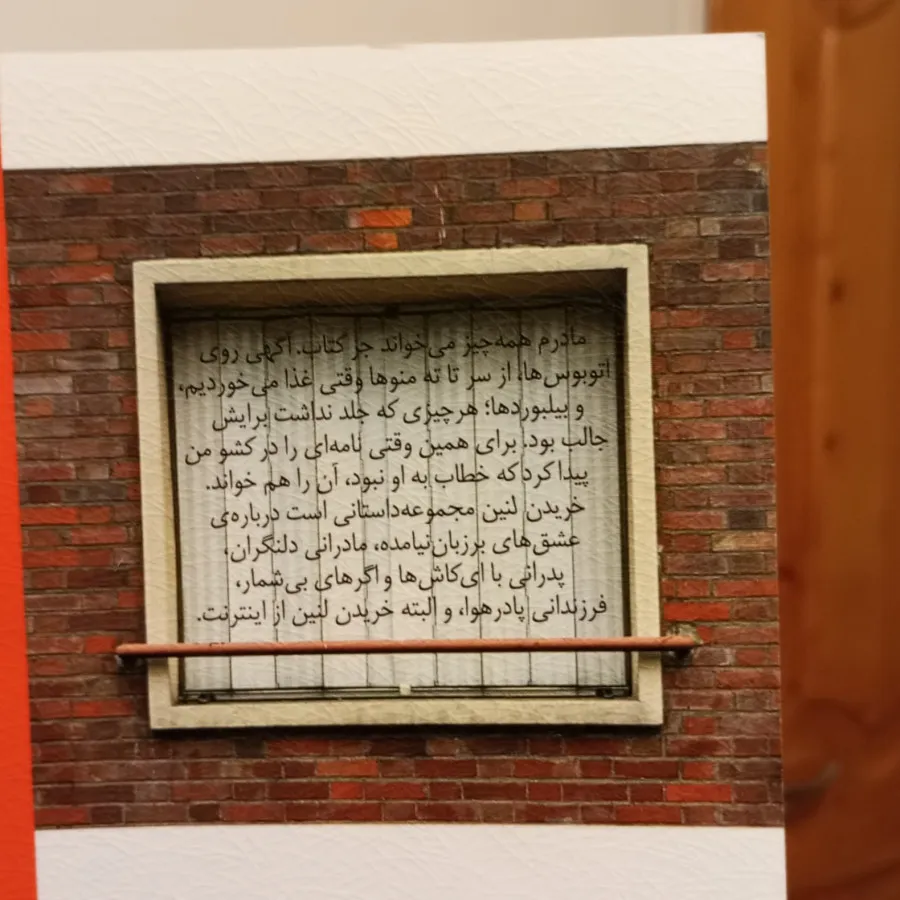 مادرم همه‌چیز می‌خواند جز کتاب. آگهی روی
اتوبوس‌ها، از سر تا ته منوها وقتی غذا می‌خوردیم،
و بیلبوردها؛ هرچیزی که جلد نداشت برایش
جالب بود. برای همین وقتی نامه‌ای را در کشو من
پیدا کرد که خطاب به او نبود، آن را هم خواند.
خریدن لنین مجموعه‌داستانی است درباره‌ی
عشق‌های برزبان‌نیامده، مادرانی دلنگران،
پدرانی با ای‌کاش‌ها و اگرهای بی‌شمار،
فرزندانی پادرهوا، و البته خریدن لنین از اینترنت.